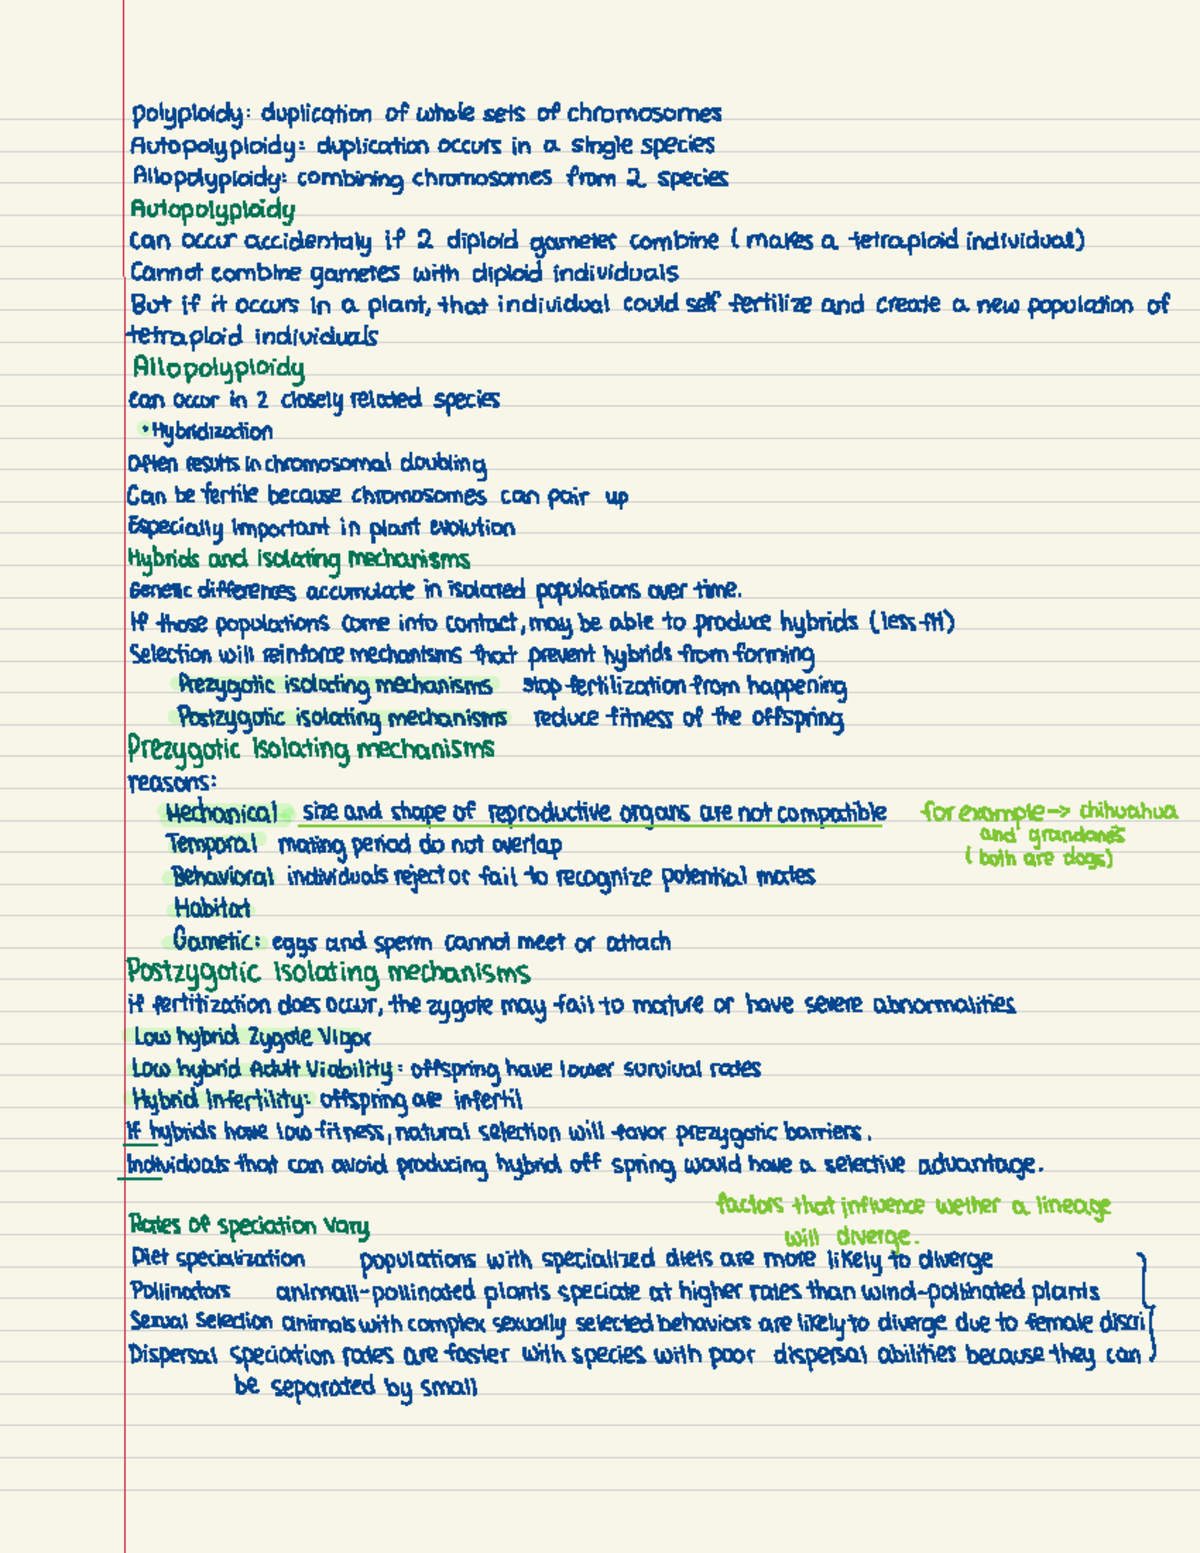 Polyploidy: duplication of whole sets of chromosomes
Autopolyploidy: duplication occurs in a single species
Allopolyploidy: combining chromosomes from 2 species
Autopolyploidy
can occur accidentaly if 2 diploid gametes combine (makes a tetraploid individual)
Cannot combine gametes with diploid individuals
But if it occurs in a plant, that individual could self fertilize and create a new population of
tetraploid individuals
Allopolyploidy
can occur in 2 closely related species
• Hybridization
Often results in chromosomal doubling
Can be fertile because chromosomes can pair up
Especially important in plant evolution
Hybrids and isolating mechanisms
Genetic differences accumulate in isolated populations over time.
If those populations come into contact, may be able to produce hybrids (less fit)
Selection will reinforce mechanisms that prevent hybrids from forming
Prezygotic isolating mechanisms stop fertilization from happening
Postzygotic isolating mechanisms reduce fitness of the offspring
Prezygotic Isolating mechanisms
reasons:
Mechanical size and shape of reproductive organs are not compatible for example -> chihuahua
and grandanes
(both are dogs)
Temporal mating period do not overlap
Behavioral individuals reject or fail to recognize potential mates
Habitat
Gametic: eggs and sperm cannot meet or attach
Postzygotic Isolating mechanisms
if fertitization does occur, the zygote may fail to mature or have severe abnormalities
Low hybrid Zygote Vigor
Low hybrid Adult Viability: offspring have lower survival rates
Hybrid Infertility: offspring are infertil
If hybrids have low fitness, natural selection will favor prezygotic barriers.
Individuals that can avoid producing hybrid off spring would have a selective advantage.
factors that influence wether a lineage
will diverge.
Rates of speciation Vary
Diet specialization populations with specialized diets are more likely to diverge
Pollinators animall-pollinated plants speciate at higher rates than wind-pollinated plants
Sexual Selection animals with complex sexually selected behaviors are likely to diverge due to female discri
Dispersal speciation rates are faster with species with poor dispersal abilities because they can
be separated by small